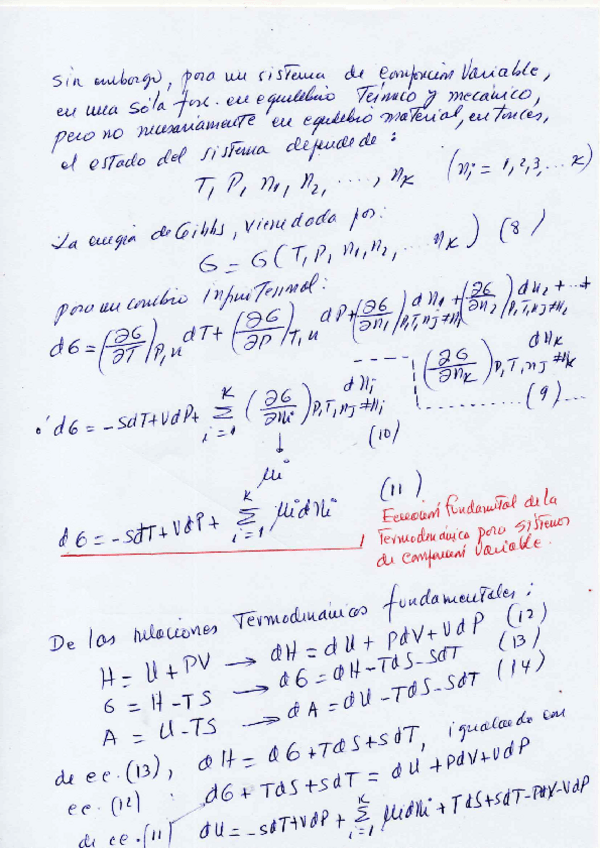 Sin embargo, para un sistema de composición Variable,
en una sóla fase. en equilibrio Térmico y mecánico,
pero no necesariamente en equilibrio material, entonces,
el estado del sistema depende de :
T, P, n₁, n₂, ...., nₖ (nᵢ = 1,2,3,... K)
La energía de Gibbs, viene dada por:
G = G (T, P, n₁, n₂, ... nₖ) (8)
para un cambio infinitesimal:
dG = (∂G/∂T)P,n dT + (∂G/∂P)T,n dP + (∂G/∂n₁)P,T,nj≠n₁ dn₁ + (∂G/∂n₂)P,T,nj≠n₂ dn₂ + ... +
(∂G/∂nₖ)P,T,nj≠nₖ dnₖ
(9)
dG = -SdT + VdP + Σ i=1 K (∂G/∂nᵢ)P,T,nj≠nᵢ dnᵢ
(10)
↓
μᵢ
dG = -SdT + VdP + Σ i=1 K μᵢdnᵢ (11)
Ecuación fundamental de la
Termodinámica para sistemas
de composición variable.
De las relaciones Termodinámicas fundamentales :
H = U + PV → dH = dU + PdV + VdP (12)
G = H - TS → dG = dH - TdS - SdT (13)
A = U - TS → dA = dU - TdS - SdT (14)
de ec. (13), dH = dG + TdS + SdT, igualando con
ec. (12) : dG + TdS + SdT = dU + PdV + VdP
de ec. (11) dU = -SdT + VdP + Σ i=1 K μᵢdnᵢ + TdS + SdT - PdV - VdP